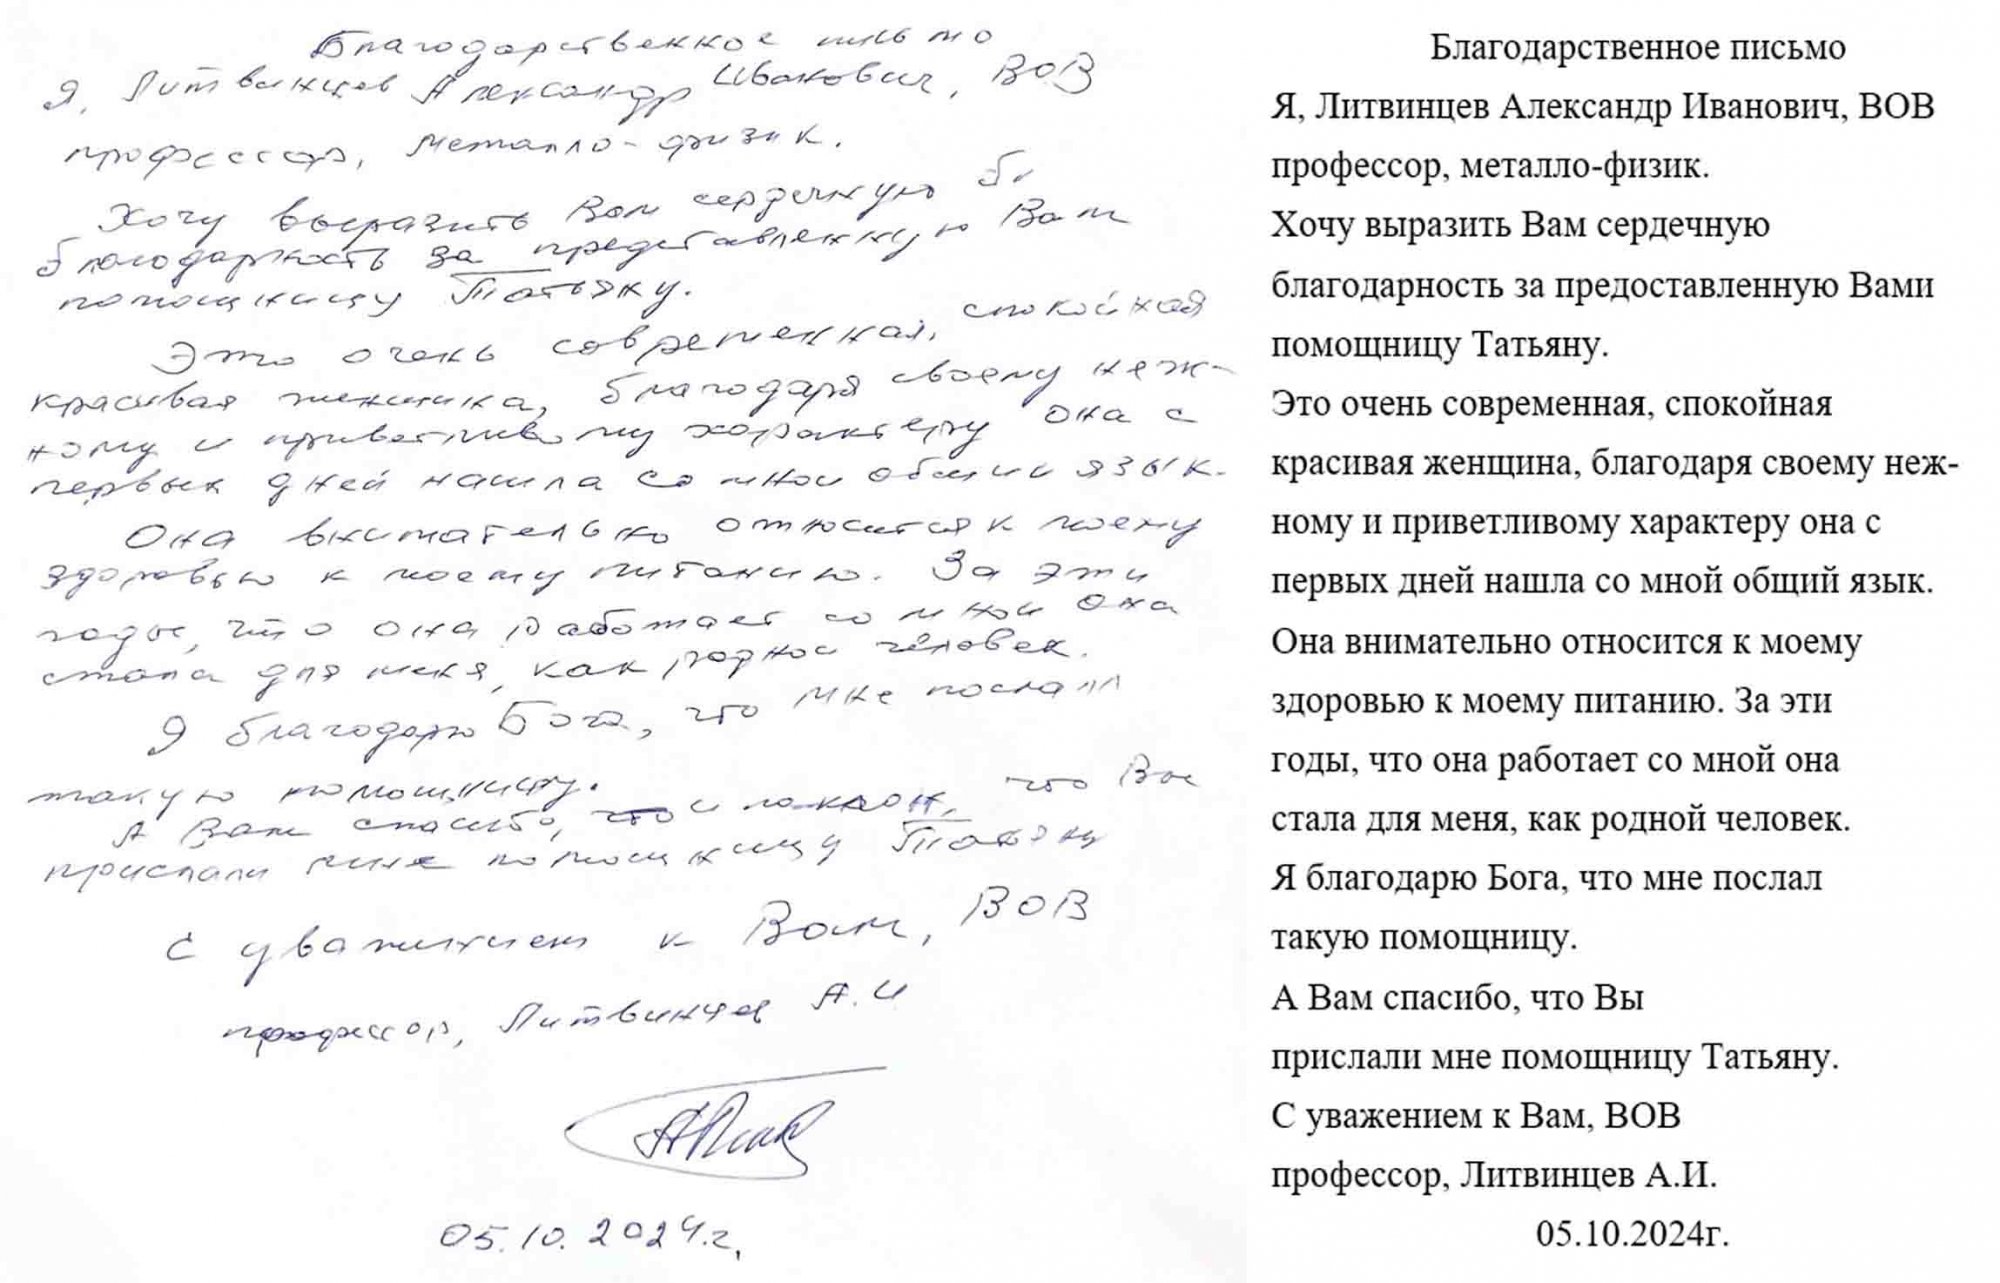 Благодарственное письмо
Я, Литвинцев Александр Иванович, ВОВ
профессор, металло-физик.
Хочу выразить Вам сердечную
благодарность за представленную Вам
помощницу Татьяну.
Это очень современная, спокойная
красивая женщина, благодаря своему неж-
ному и приветливому характеру она с
первых дней нашла со мной общий язык.
Она внимательно относится к моему
здоровью к моему питанию. За эти
годы, что она работает со мной она
стала для меня, как родной человек.
Я благодарю Бога, что мне послал
такую помощницу.
А Вам спасибо, и поклон, что Вы
прислали мне помощницу Татьяну
С уважением к Вам, ВОВ
профессор, Литвинцев А.И
05.10.2024г.
Благодарственное письмо
Я, Литвинцев Александр Иванович, ВОВ
профессор, металло-физик.
Хочу выразить Вам сердечную
благодарность за предоставленную Вами
помощницу Татьяну.
Это очень современная, спокойная
красивая женщина, благодаря своему неж-
ному и приветливому характеру она с
первых дней нашла со мной общий язык.
Она внимательно относится к моему
здоровью к моему питанию. За эти
годы, что она работает со мной она
стала для меня, как родной человек.
Я благодарю Бога, что мне послал
такую помощницу.
А Вам спасибо, что Вы
прислали мне помощницу Татьяну.
С уважением к Вам, ВОВ
профессор, Литвинцев А.И.
05.10.2024г.